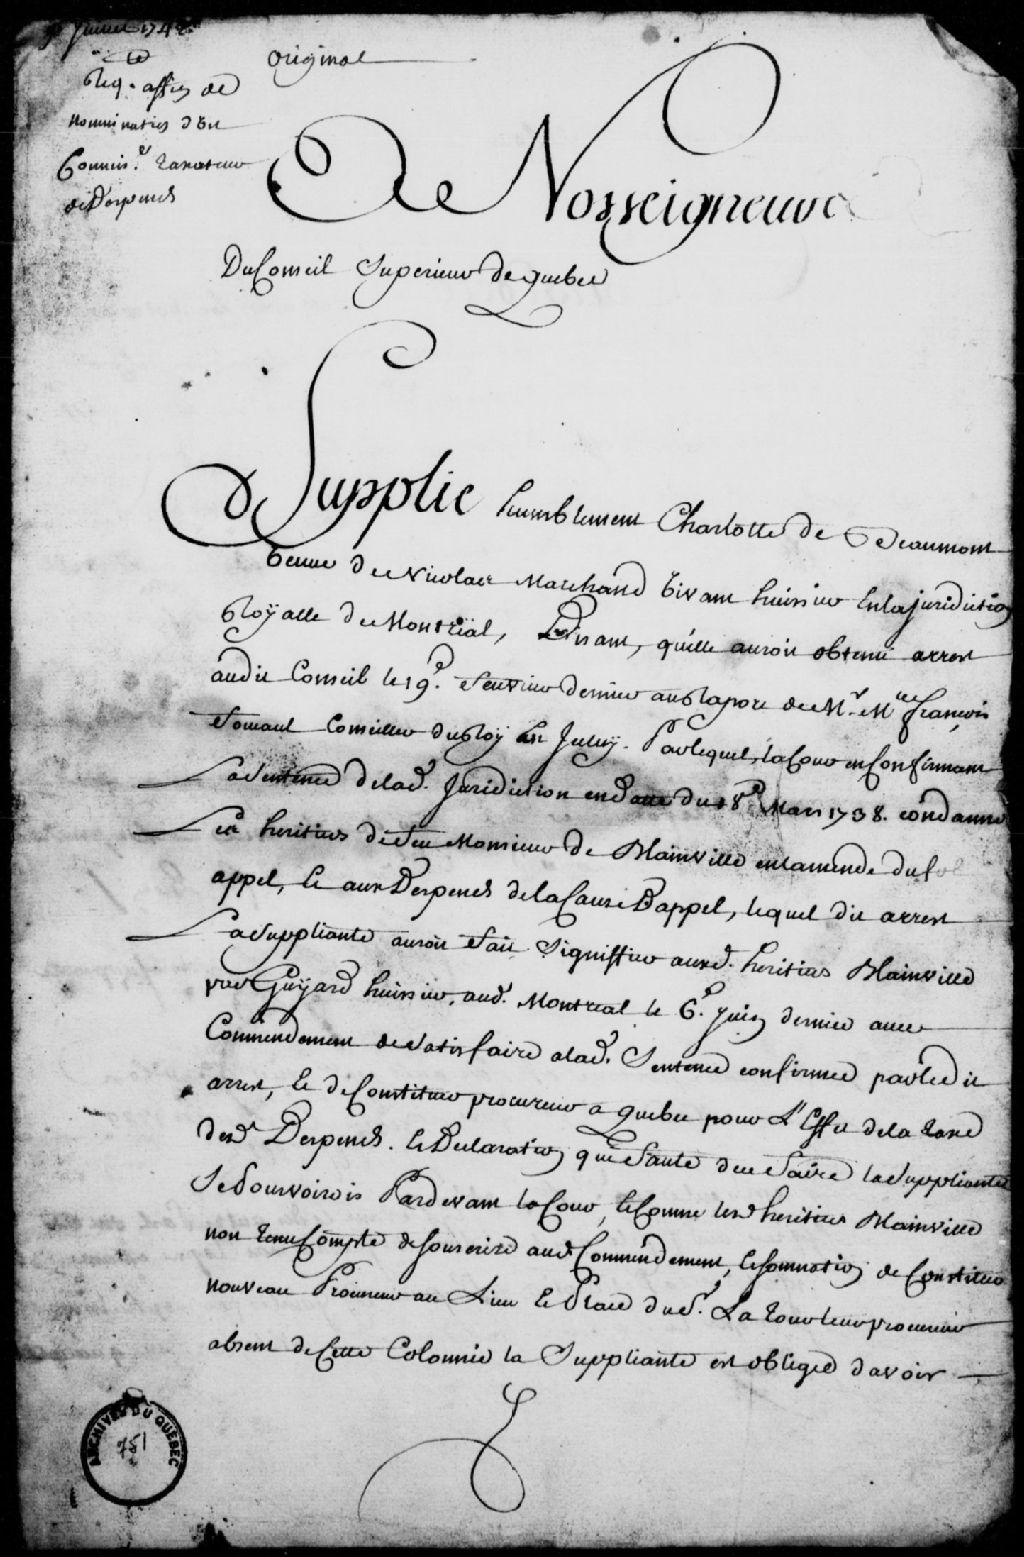 Juillet 174
Req. affin de
nomination d'un
Commis.re taxateur
de Depens
original
A Nosseigneurs
Du Conseil Superieur de quebec
Supplie humblement Charlotte de Beaumont
veuve de Nicolas Marchand vivant huissier en la juridiction
Royalle de Montréal, Disant, qu'elle auroit obtenu arrest
audit Conseil le 19e. Fevrier dernier au Raport de Mr. Mtre françois
Foucault Conseiller du Roy Par lequel, la Cour en Confirmant
La Sentence de lad. Juridiction en datte du 18e Mars 1738. condamne
Les heritiers de feu Monsieur de Blainville en lamende du fol
appel, Et aux Depens de la Cause D'appel, lequel dit arrest
La Suppliante auroit fait Signiffier auxd. heritiers Blainville
par Guyard huissier, aud. Montreal le 6e Juin dernier avec
Commendement de Satisfaire a lad. Sentence confirmée par ledit
arrest, Et de Constituer procureur a quebec pour L'Effet de la taxe
desd Depens. Et Declaration que faute de ce faire la Suppliante
Se Pourvoirois Pardevant la Cour, Et Comme lesd heritiers Blainville
non tenu Compte de Souscrire aud Commendement, Et Sommation de Constituer
nouveau Procureur au Lieu Et Place du Sr. La tour leur procureur
absent de Cette Colonnie la Suppliante est obligée d'avoir
ARCHIVES DU QUÉBEC
751